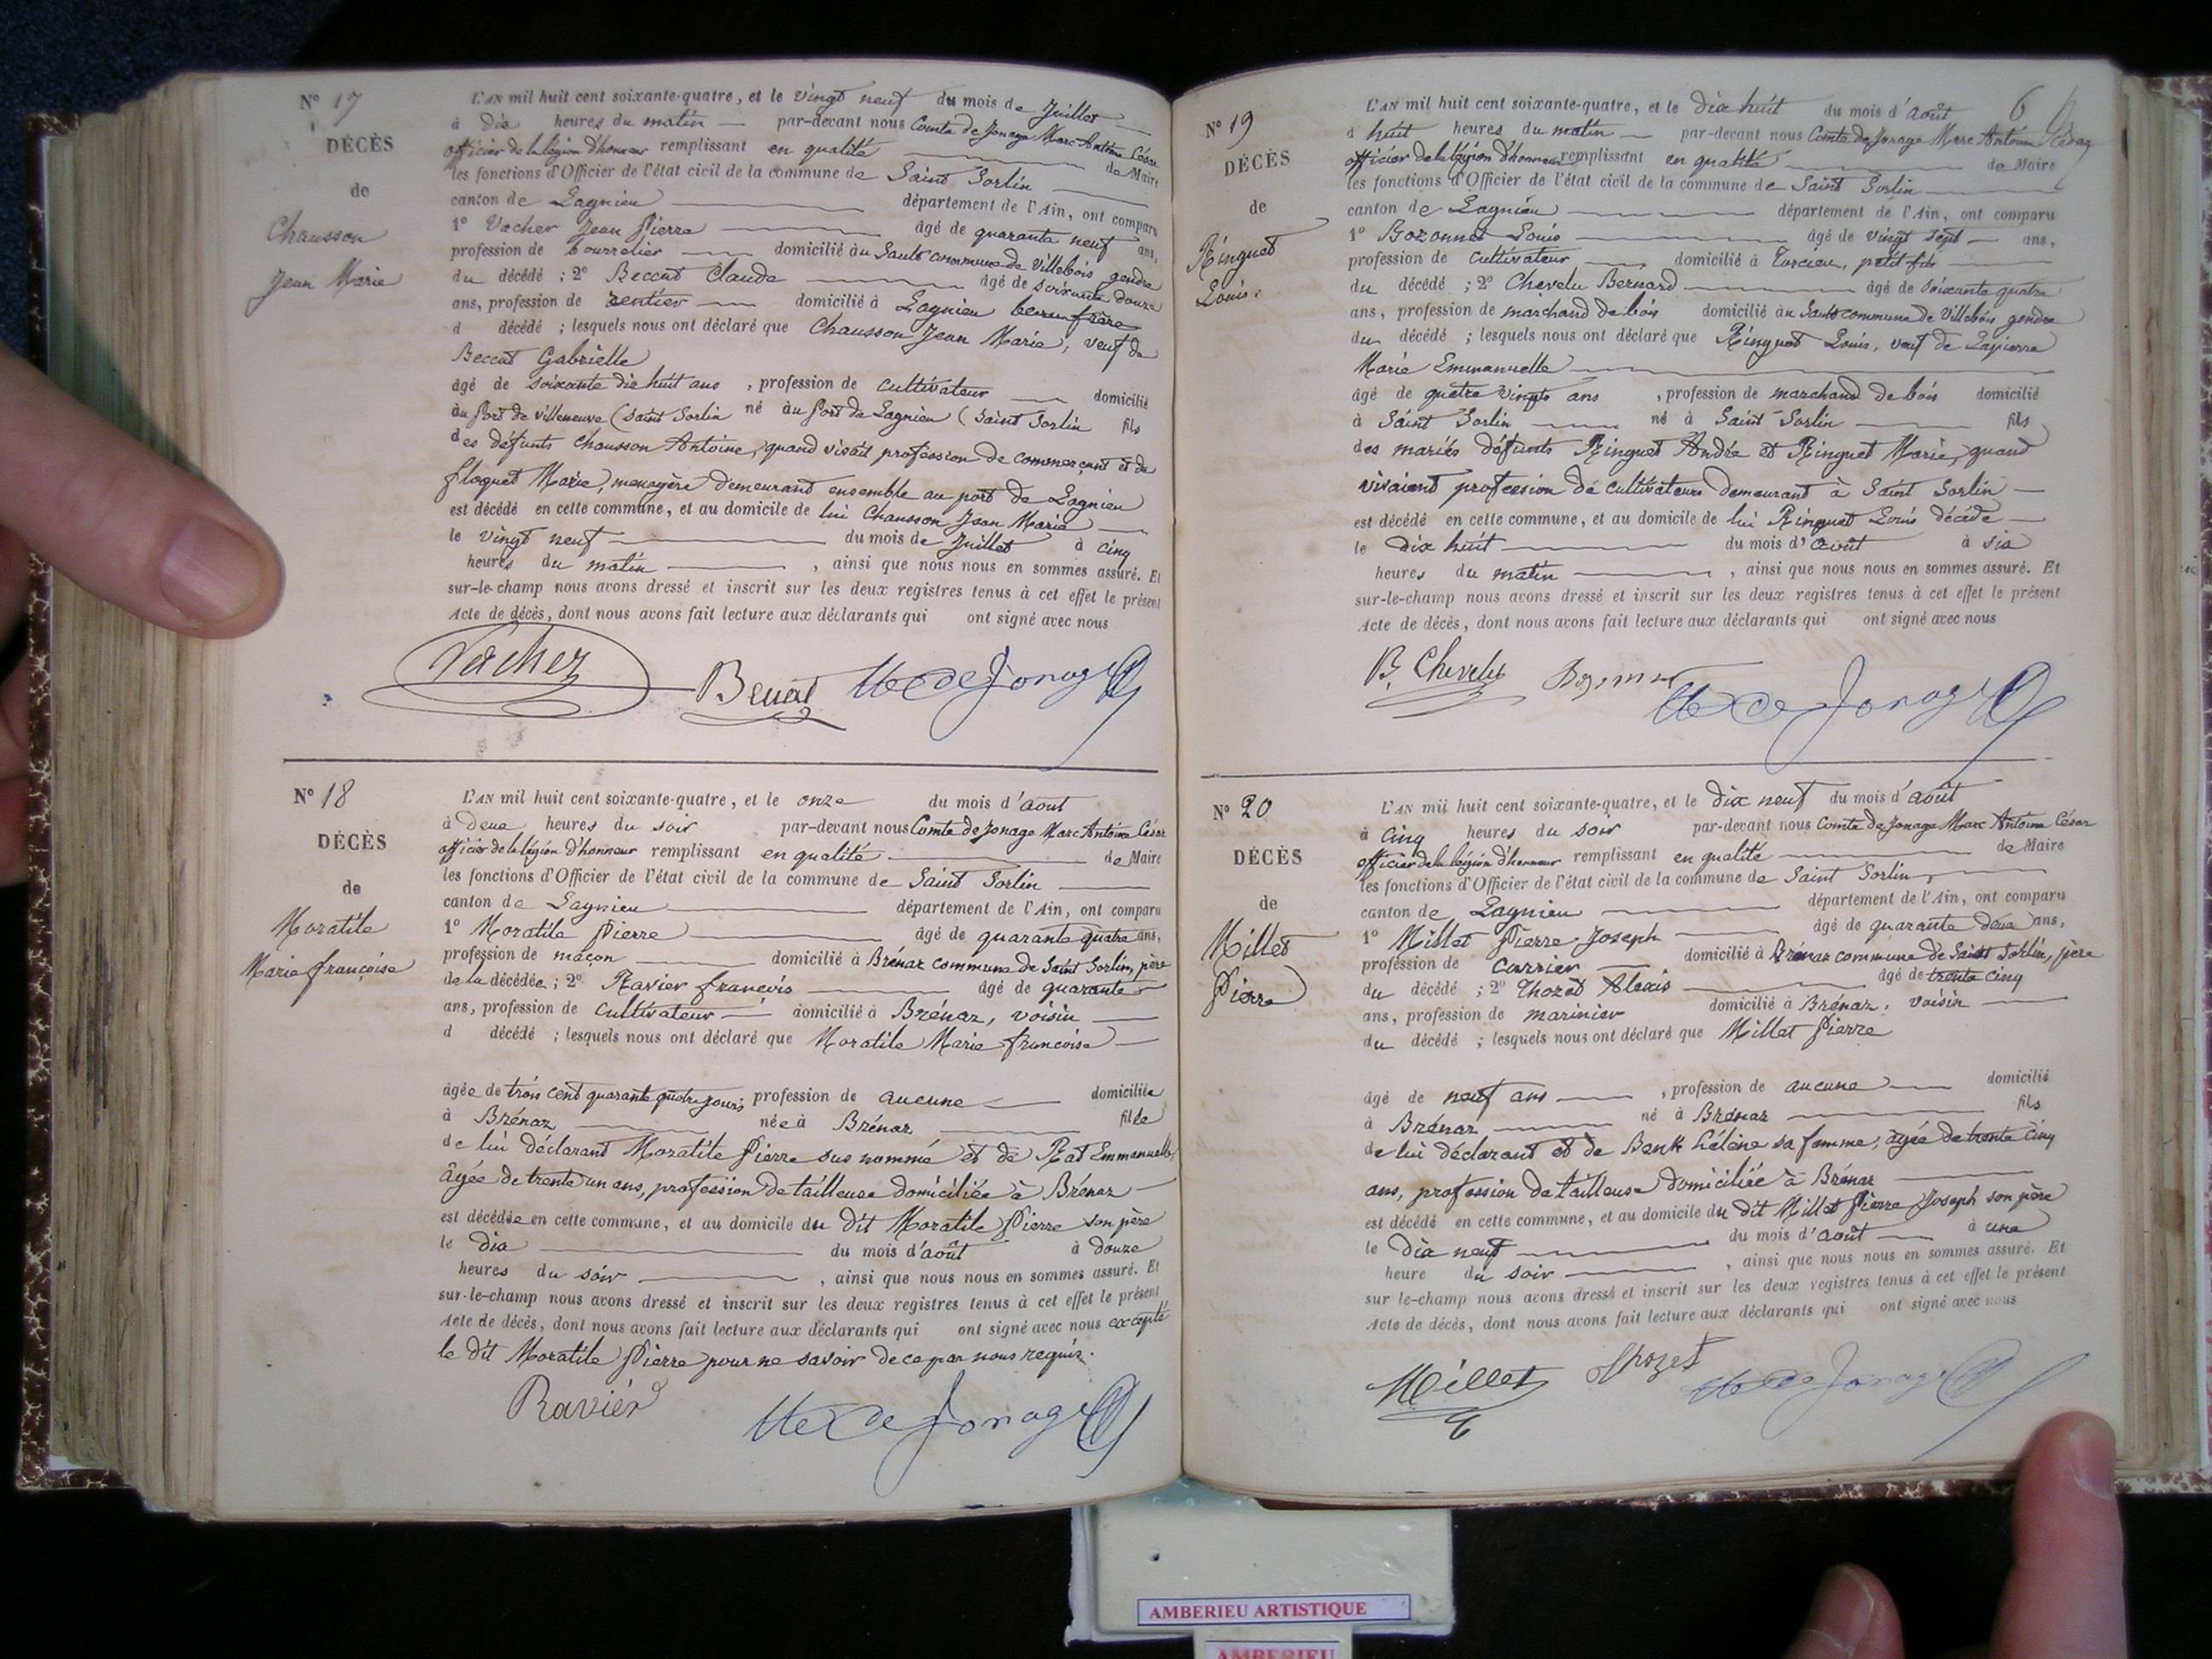 N° 17
DÉCÈS
de
Chausson
Jean Marie
L'AN mil huit cent soixante-quatre, et le vingt neuf du mois de Juillet
à dix heures du matin par-devant nous Comte de Jonage Marc Antoine César
officier de la légion d'honneur remplissant en qualité de Maire
les fonctions d'Officier de l'état civil de la commune de Saint Sorlin
canton de Lagnieu département de l'Ain, ont comparu
1° Vacher Jean Pierre âgé de quarante neuf ans,
profession de bourrelier domicilié au Sault commune de Villebois gendre
du décédé ; 2° Beccat Claude âgé de soixante douze
ans, profession de rentier domicilié à Lagnieu beau frère
d décédé ; lesquels nous ont déclaré que Chausson Jean Marie, veuf de
Beccat Gabrielle
âgé de soixante dix huit ans , profession de cultivateur domicilié
au port de villeneuve (Saint Sorlin né au port de Lagnieu (Saint Sorlin fils
des défunts Chausson Antoine, quand vivait profession de commerçant et de
floquet Marie, menagère demeurant ensemble au port de Lagnieu
est décédé en cette commune, et au domicile de lui Chausson Jean Marie
le vingt neuf du mois de Juillet à cinq
heures du matin , ainsi que nous nous en sommes assuré. Et
sur-le-champ nous avons dressé et inscrit sur les deux registres tenus à cet effet le présent
Acte de décès, dont nous avons fait lecture aux déclarants qui ont signé avec nous
Vacher Beccat Cte de Jonage
N° 18
DÉCÈS
de
Moratile
Marie françoise
L'AN mil huit cent soixante-quatre, et le onze du mois d'aout
à deux heures du soir par-devant nous Comte de Jonage Marc Antoine César
officier de la légion d'honneur remplissant en qualité de Maire
les fonctions d'Officier de l'état civil de la commune de Saint Sorlin
canton de Lagnieu département de l'Ain, ont comparu
1° Moratile Pierre âgé de quarante quatre ans,
profession de maçon domicilié à Brénaz commune de Saint Sorlin, père
de la décédée ; 2° Ravier françois âgé de quarante
ans, profession de cultivateur domicilié à Brénaz, voisin
d décédé ; lesquels nous ont déclaré que Moratile Marie françoise
âgée de trois cent quarante quatre jours profession de aucune domiciliée
à Brénaz née à Brénaz fille
de lui déclarant Moratile Pierre sus nommé et de Rat Emmanuelle,
âgée de trente un ans, profession de tailleuse domiciliée à Brénaz
est décédée en cette commune, et au domicile du dit Moratile Pierre son père
le dix du mois d'août à douze
heures du soir , ainsi que nous nous en sommes assuré. Et
sur-le-champ nous avons dressé et inscrit sur les deux registres tenus à cet effet le présent
Acte de décès, dont nous avons fait lecture aux déclarants qui ont signé avec nous excepté
le dit Moratile Pierre pour ne savoir de ce par nous requis.
Ravier Cte de Jonage
6
N° 19
DÉCÈS
de
Ringuet
Louis
L'AN mil huit cent soixante-quatre, et le dix huit du mois d'août
à huit heures du matin par-devant nous Comte de Jonage Marc Antoine César
officier de la légion d'honneur remplissant en qualité de Maire
les fonctions d'Officier de l'état civil de la commune de Saint Sorlin
canton de Lagnieu département de l'Ain, ont comparu
1° Bozonnet Louis âgé de vingt sept ans,
profession de cultivateur domicilié à Torcieu, petit fils
du décédé ; 2° Chevelu Bernard âgé de soixante quatre
ans, profession de marchand de bois domicilié au Sault commune de Villebois gendre
du décédé ; lesquels nous ont déclaré que Ringuet Louis, veuf de Lapierre
Marie Emmanuelle
âgé de quatre vingts ans , profession de marchand de bois domicilié
à Saint Sorlin né à Saint Sorlin fils
des mariés défunts Ringuet André et Ringuet Marie, quand
vivaient profession de cultivateurs demeurant à Saint Sorlin
est décédé en cette commune, et au domicile de lui Ringuet Louis décédé
le dix huit du mois d'août à six
heures du matin , ainsi que nous nous en sommes assuré. Et
sur-le-champ nous avons dressé et inscrit sur les deux registres tenus à cet effet le présent
Acte de décès, dont nous avons fait lecture aux déclarants qui ont signé avec nous
B. Chevelu Cte de Jonage
N° 20
DÉCÈS
de
Millet
Pierre
L'AN mil huit cent soixante-quatre, et le dix neuf du mois d'août
à cinq heures du soir par-devant nous Comte de Jonage Marc Antoine César
officier de la légion d'honneur remplissant en qualité de Maire
les fonctions d'Officier de l'état civil de la commune de Saint Sorlin,
canton de Lagnieu département de l'Ain, ont comparu
1° Millet Pierre Joseph âgé de quarante deux ans,
profession de carrier domicilié à Brénaz commune de Saint Sorlin, père
du décédé ; 2° Thozet Alexis âgé de trente cinq
ans, profession de marinier domicilié à Brénaz, voisin
du décédé ; lesquels nous ont déclaré que Millet Pierre
âgé de neuf ans , profession de aucune domicilié
à Brénaz né à Brénaz fils
de lui déclarant et de Hélène sa femme, âgée de trente cinq
ans, profession de tailleuse domiciliée à Brénaz
est décédé en cette commune, et au domicile du dit Millet Pierre Joseph son père
le dix neuf du mois d'août à une
heure du soir , ainsi que nous nous en sommes assuré. Et
sur le-champ nous avons dressé et inscrit sur les deux registres tenus à cet effet le présent
Acte de décès, dont nous avons fait lecture aux déclarants qui ont signé avec nous
Millet Thozet Cte de Jonage
AMBERIEU ARTISTIQUE
AMBERIEU